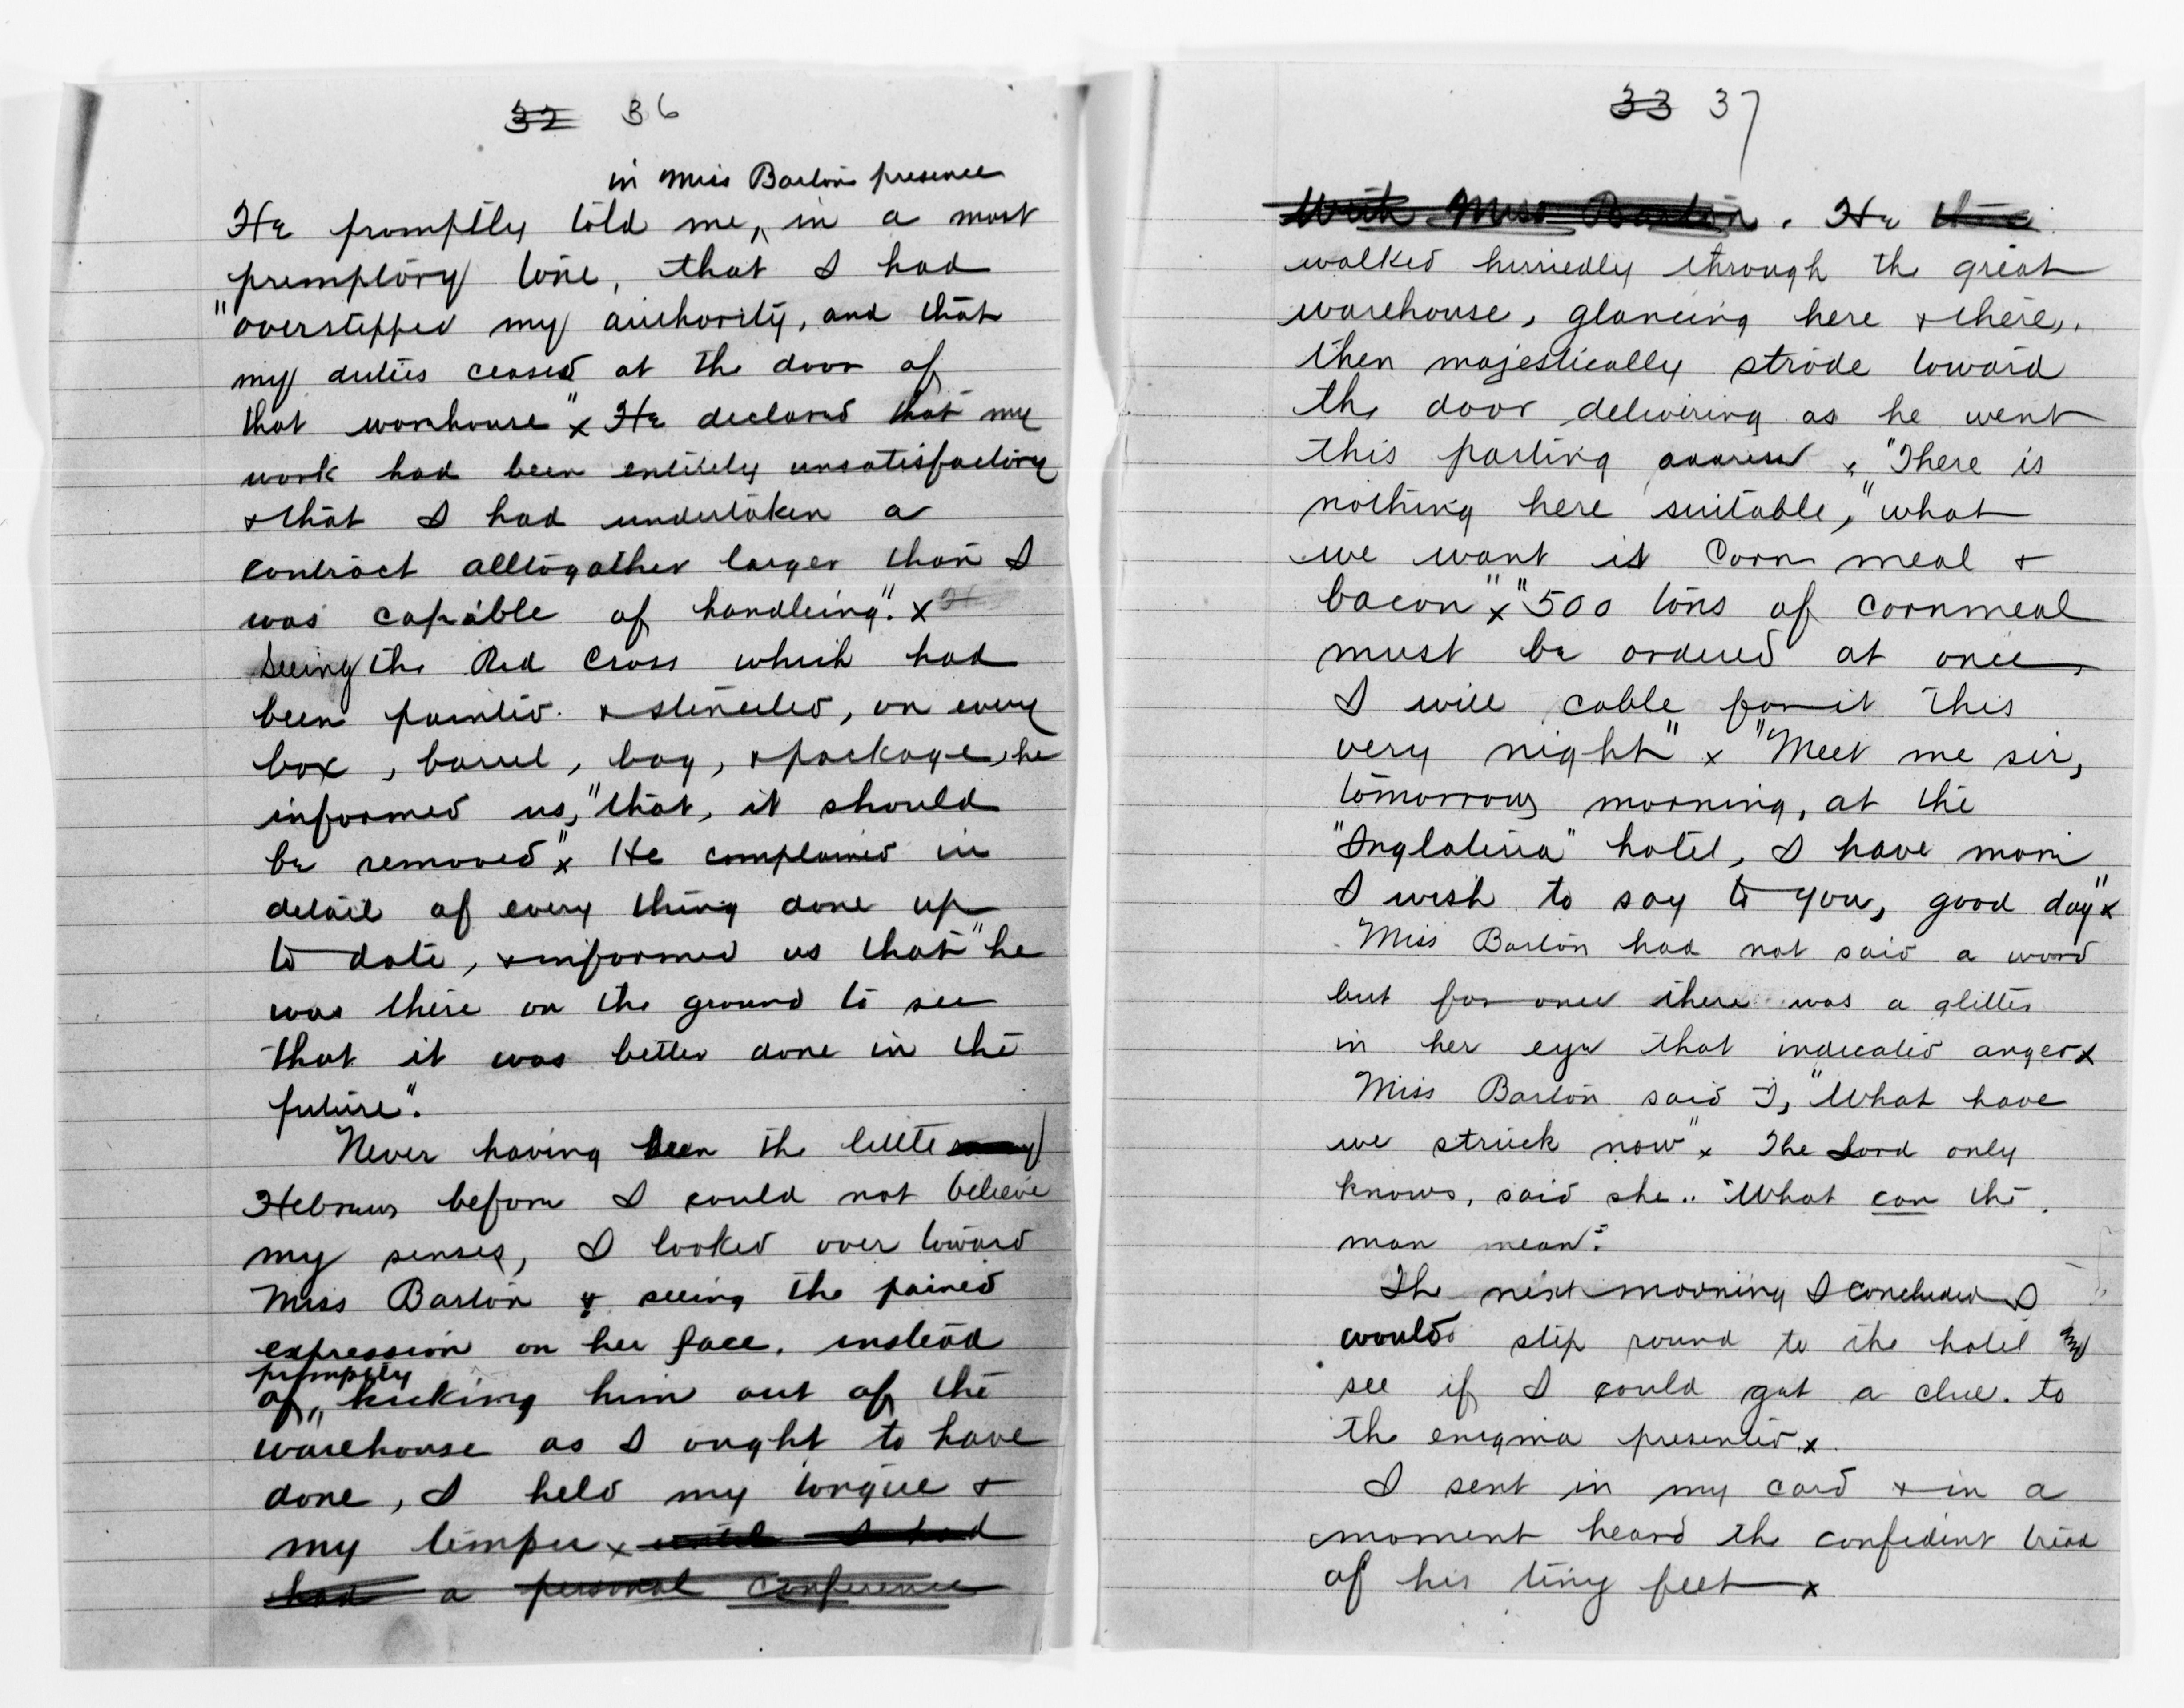 32 36
in Miss Bartons presence
He promptly told me, in a most
premptory tone, that I had
"overstepped my authority, and that
my duties ceased at the door of
that warehouse" x He declared that my
work had been entirely unsatisfactory
& that I had undertaken a
contract alltogather larger than I
was capable of handleing". x H
Seeing the Red Cross which had
been painted & stenciled, on every
box, barrel, bag, & package, he
informed us, "that, it should
be removed" x He complained in
detail of every thing done up
to date, & informed us that "he
was there on the ground to see
that it was better done in the
future".
Never having seen the little
Hebrew before I could not believe
my senses, I looked over toward
Miss Barton & seeing the pained
expression on her face, instead
promptly
of, kicking him out of the
warehouse as I ought to have
done, I held my tongue &
my temper x until I had
had a personal conference
33 37
With Miss Barton. He then
walked hurriedly through the great
warehouse, glancing here & there,
then majestically strode toward
the door delivering as he went
this parting address x "There is
nothing here suitable," "what
we want is Corn meal &
bacon" x "500 tons of cornmeal
must be ordered at once,
I will cable for it this
very night" x "Meet me sir,
tomorrow morning, at the
"Inglaterra" hotel, I have more
I wish to say to you, good day" x
Miss Barton had not said a word
but for once there was a glitter
in her eye that indicated anger x
Miss Barton said I, "What have
we struck now" x The Lord only
knows, said she.. "What can the
man mean".
The next morning I concluded I
would step round to the hotel and
see if I could get a clue. to
the enigma presented. x
I sent in my card & in a
moment heard the confident tread
of his tiny feet x